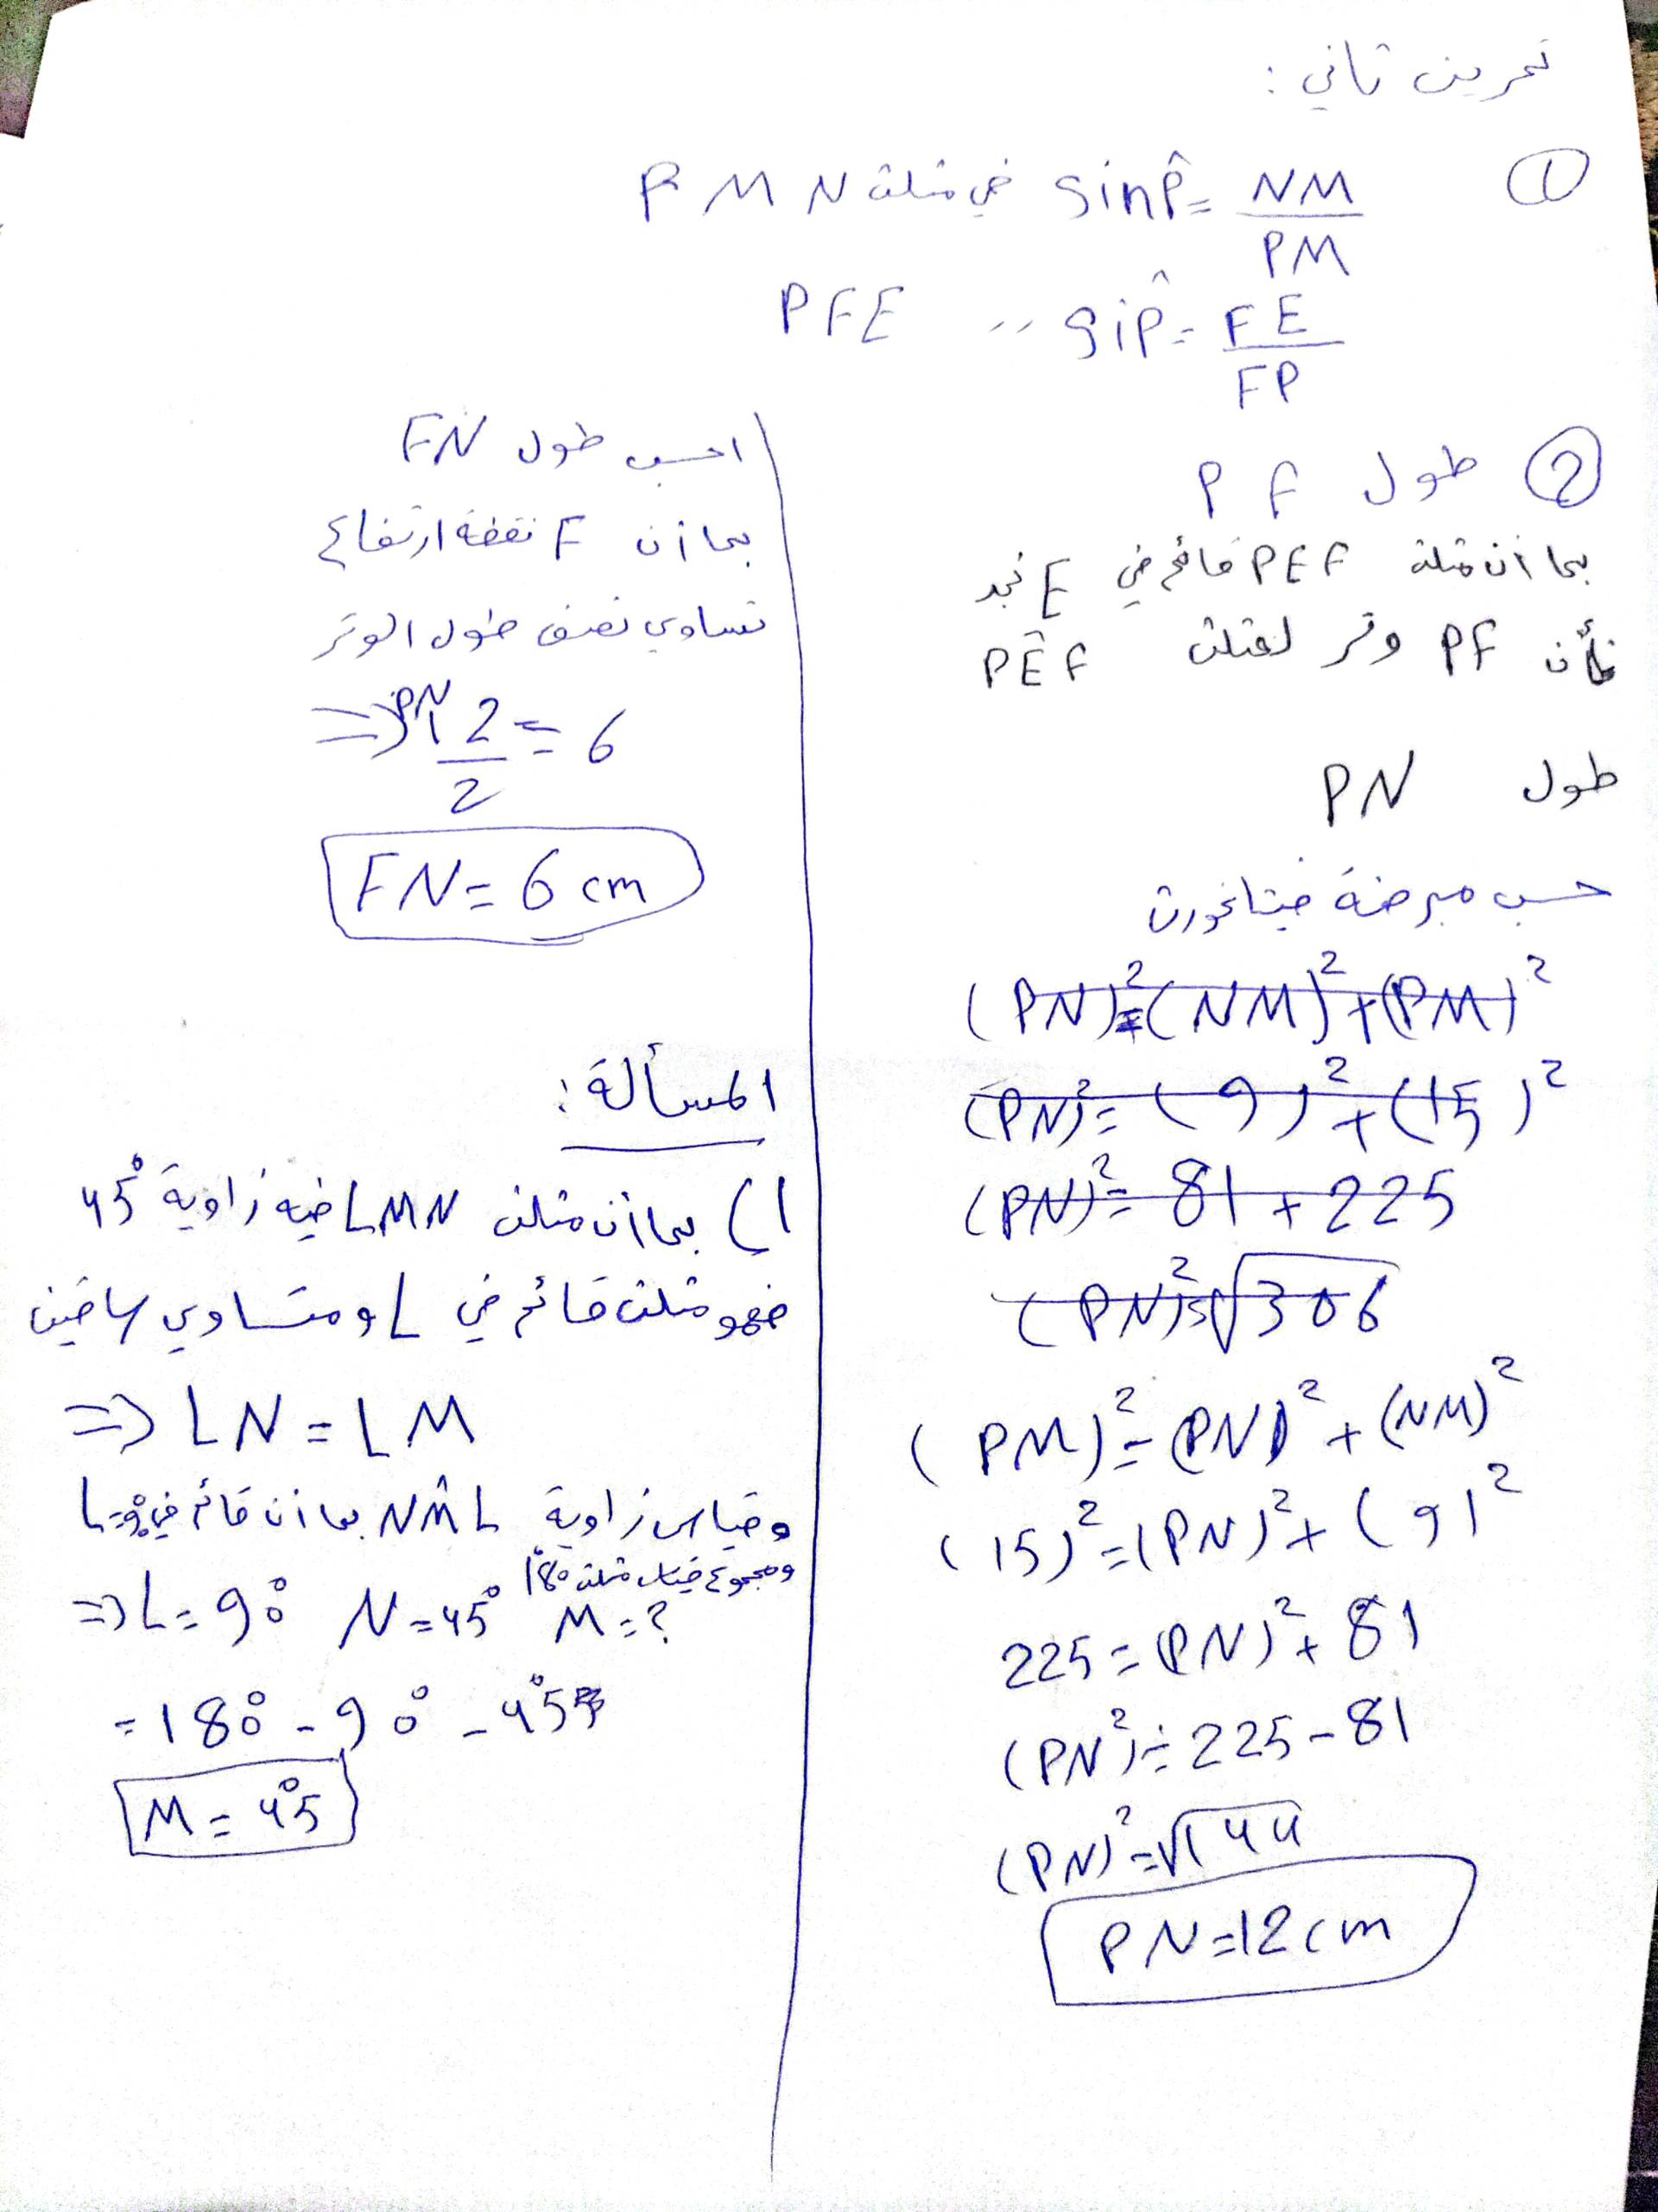 تمرين تاني :
① sin P̂ = NM / PM في مثلث P M N
sin P̂ = FE / FP " PFE
② طول P F
بما أن مثلث PEF قائم في E نجد
فأن PF وتر لمثلث PEF
طول PN
حسب مبرهنة فيثاغورث
(PN)² = (NM)² + (PM)²
(PN)² = (9)² + (15)²
(PN)² = 81 + 225
(PN)² = √306
(PM)² = (PN)² + (NM)²
(15)² = (PN)² + (9)²
225 = (PN)² + 81
(PN²) = 225 - 81
(PN)² = √144
PN = 12 cm
احسب طول FN
بما أن F نقطة ارتفاع
تساوي نصف طول الوتر
⇒ PN 12 / 2 = 6
FN = 6 cm
المسألة :
1) بما أن مثلث LMN فيه زاوية 45°
فهو مثلث قائم في L و متساوي ساقين
⇒ LN = LM
وقياس زاوية NM̂L بما أن قائم في L=90°
ومجموع قياس مثلث 180°
⇒ L = 90° N = 45° M = ?
= 180° - 90° - 45°
M = 45°